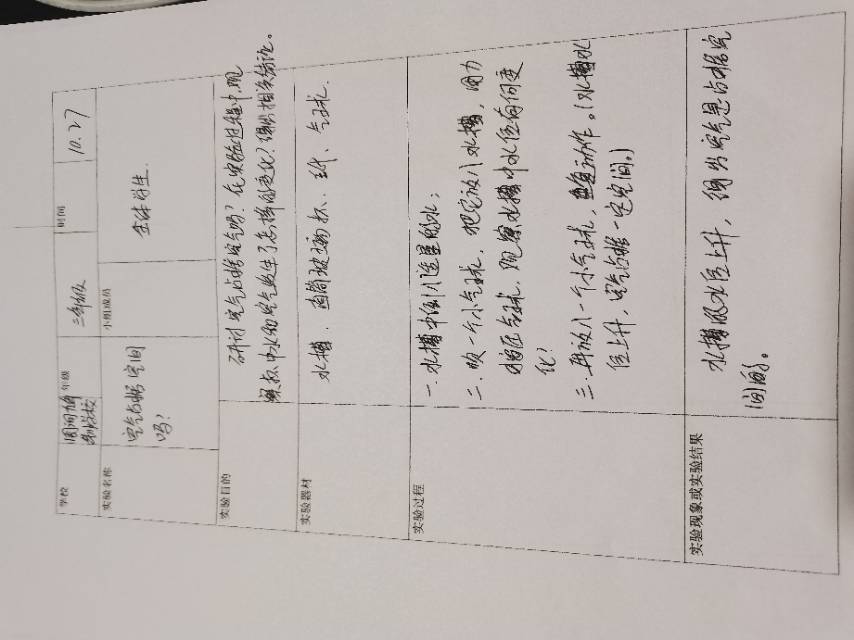 学校
年级 三年级
时间 10.27
实验名称 空气占据空间
吗?
小组成员 全体学生.
实验目的
研讨空气占据空气吗? 在实验过程中,观
中水和空气发生了怎样的变化? 得出相关结论。
实验器材
水槽. 直筒玻璃杯. 纸、气球.
实验过程
一. 水槽中倒入适量的水;
二. 吹一个小气球, 把它放入水槽, 用力
按压气球. 观察水槽中水位有何变
化?
三. 再放入一个小气球, 重复动作. (水槽水
位上升, 空气占据一定空间。)
实验现象或实验结果
水槽的水位上升, 得出空气是占据空
间的。